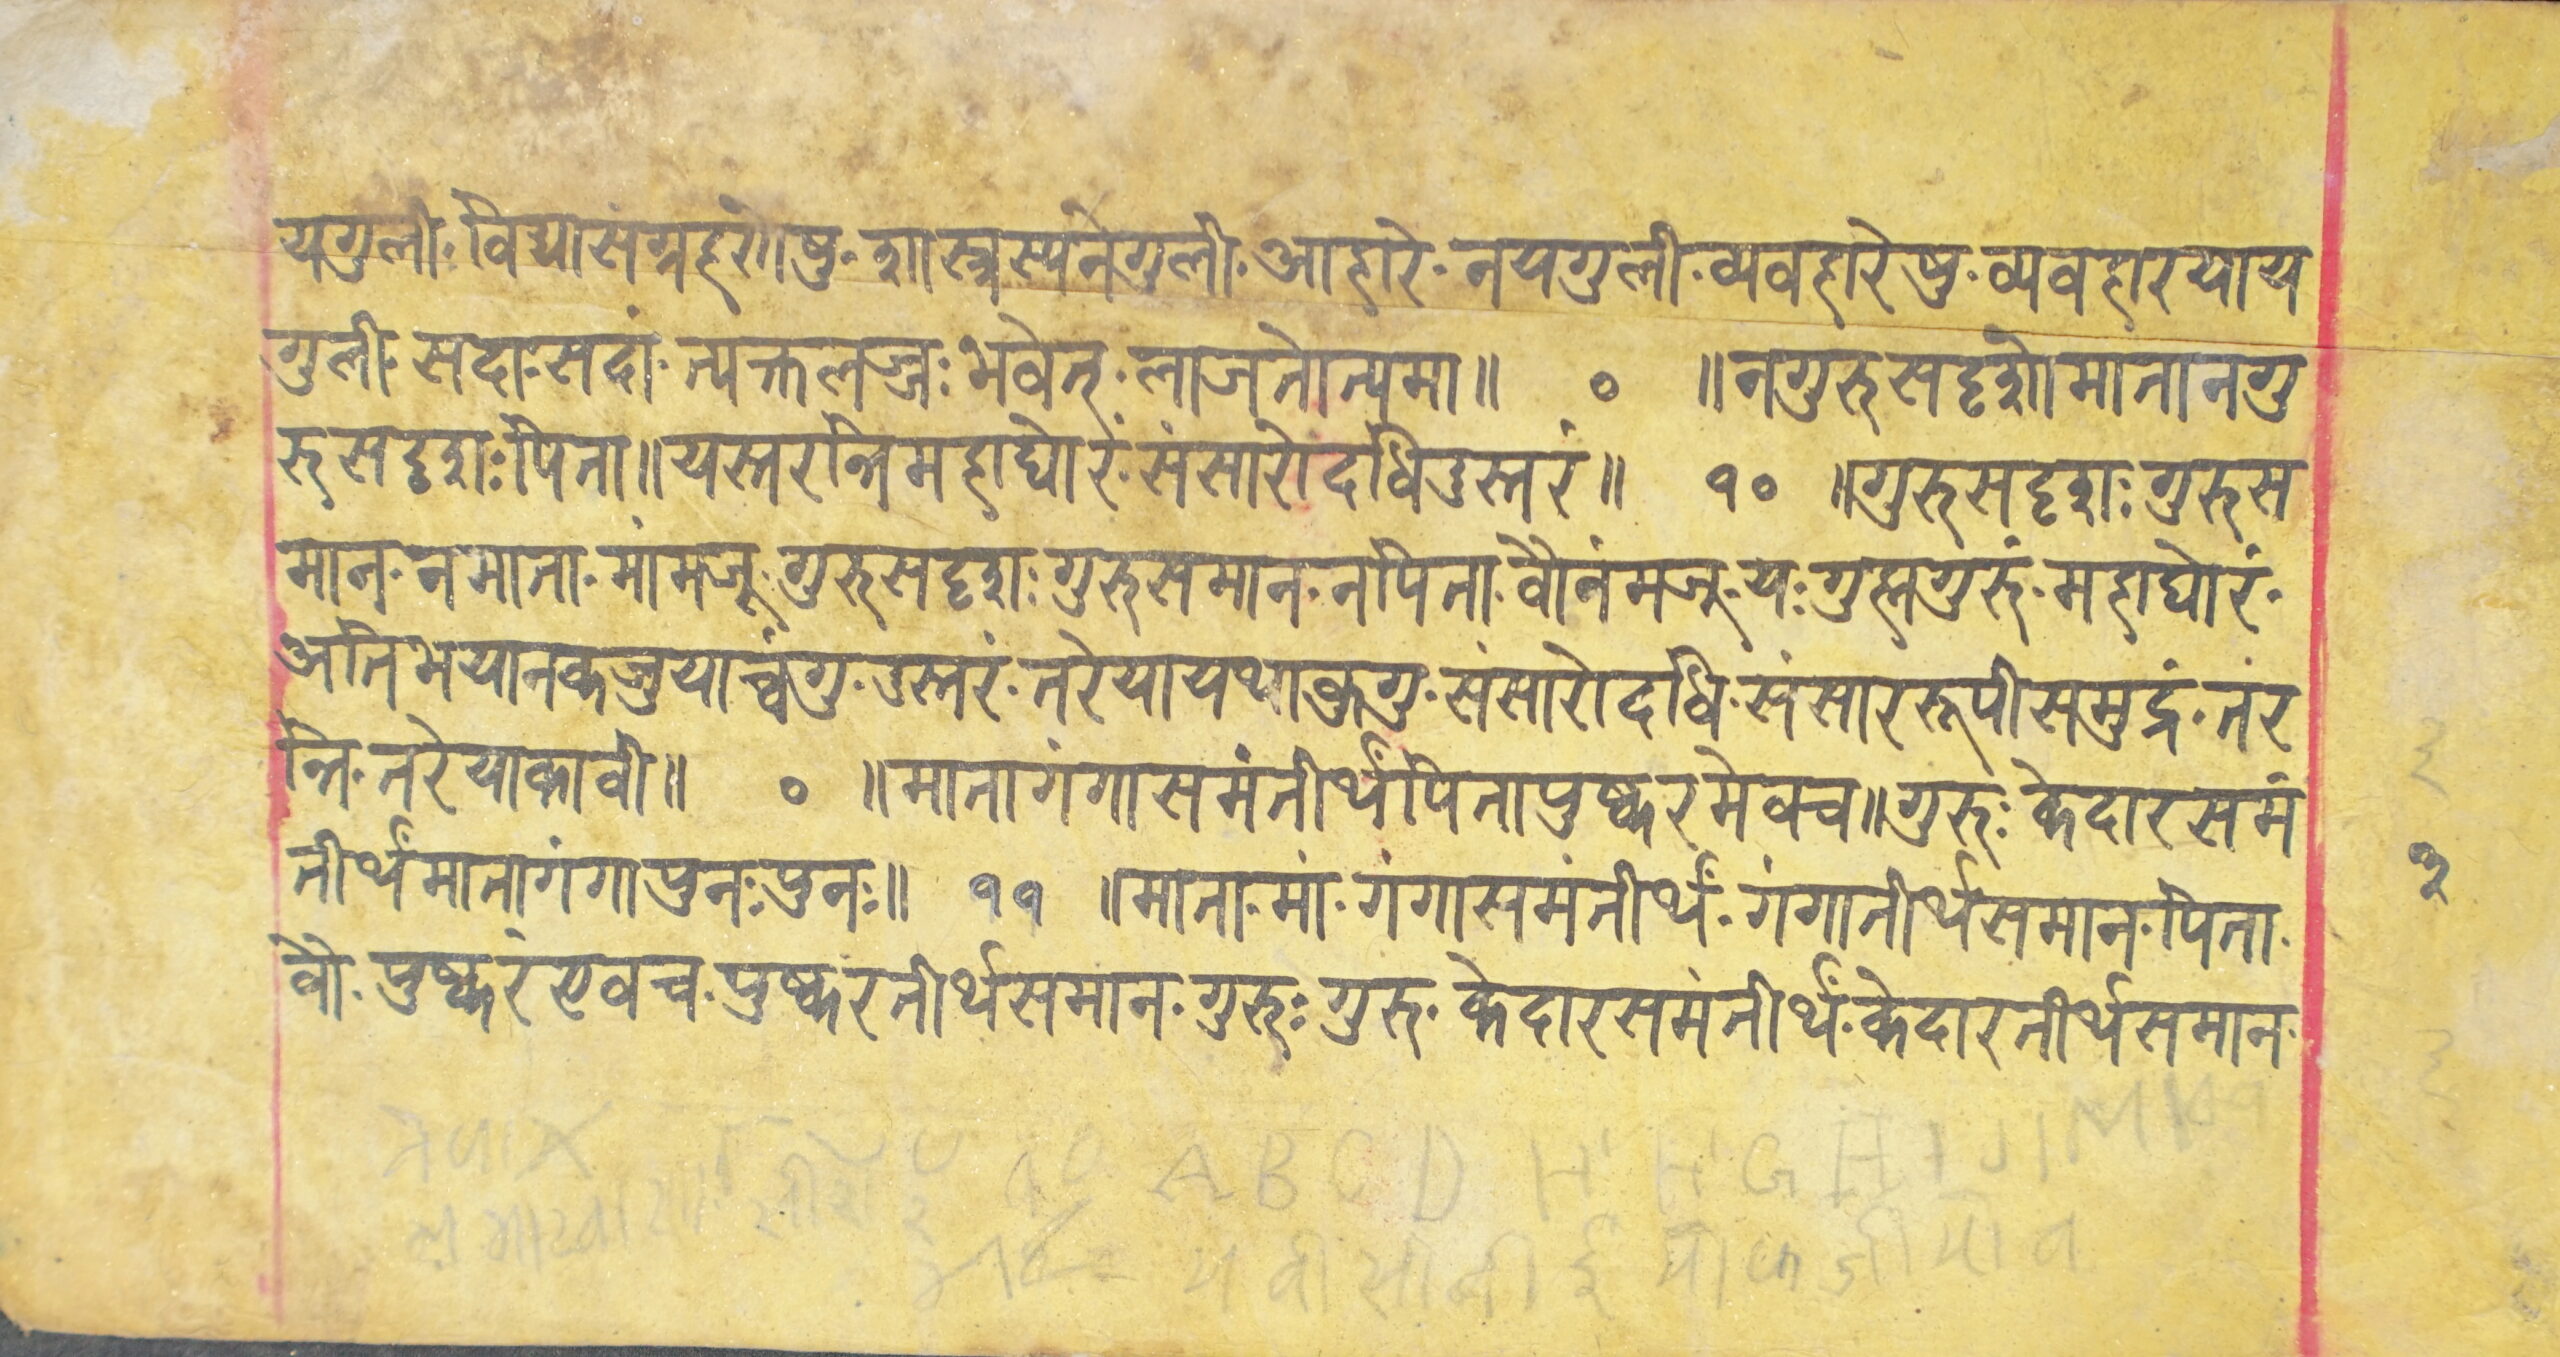 यगुली॰ विद्यासंग्रहणेषु॰ शास्त्रस्यनेगुली॰ आहारे॰ नयगुली॰ व्यवहारेषु॰ व्यवहारयाय
गुली॰ सदा॰ सदां॰ त्यक्तलज्जः भवेत्॰ लाजतोत्यमा॥ ० ॥नगुरुसदृशोमातानगु
रुसदृशःपिता॥यस्तरन्तिमहाघोरं॰संसारोदधिदुस्तरं॥ १० ॥गुरुसदृशः गुरुस
मान॰ नमाता॰ मांमजू॰ गुरुसदृशः गुरुसमान॰ नपिता॰ वौनंमजू॰ यः गुह्मगुरुं॰ महाघोरं॰
अतिभयानकजुयाच्वंगु॰ दुस्तरं॰ तरेयायथाकुगु॰ संसारोदधि॰ संसाररूपीसमुद्रं॰ तर
न्ति॰ तरेयाकावी॥ ० ॥मातागंगासमंतीर्थंपितापुष्करमेवच॥गुरुः केदारसमं
तीर्थंमातागंगापुनःपुनः॥ ११ ॥माता॰ मां॰ गंगासमंतीर्थं॰ गंगातीर्थसमान॰ पिता॰
वौ॰ पुष्करं एवच॰ पुष्करतीर्थसमान॰ गुरुः गुरु॰ केदारसमंतीर्थं॰ केदारतीर्थसमान॰
३
A B C D H H G H I J